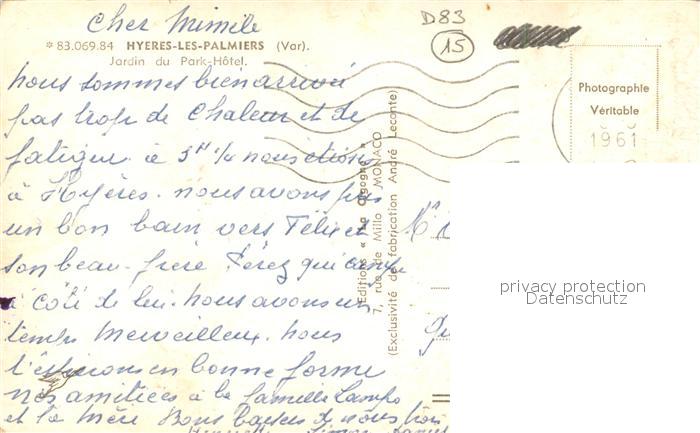 Cher Mimile
D83
15
* 83.069.84 HYERES-LES-PALMIERS (Var).
Jardin du Park-Hôtel.
Photographie
Véritable
1961
nous sommes bien arrivé
pas trop de chaleur et de
fatigue à 5H 1/4 nous étions
à Hyères. nous avons pris
un bon bain vers Félix et
son beau-frère Pérez qui
à côté de lui. nous avons un
temps merveilleux. nous
en bonne forme
nos amitiées à la famille
et ta mère Bons baisers de nous trois
Editions « La Cigogne »
7, rue de Millo MONACO
(Exclusivité de fabrication André Leconte)
privacy protection
Datenschutz